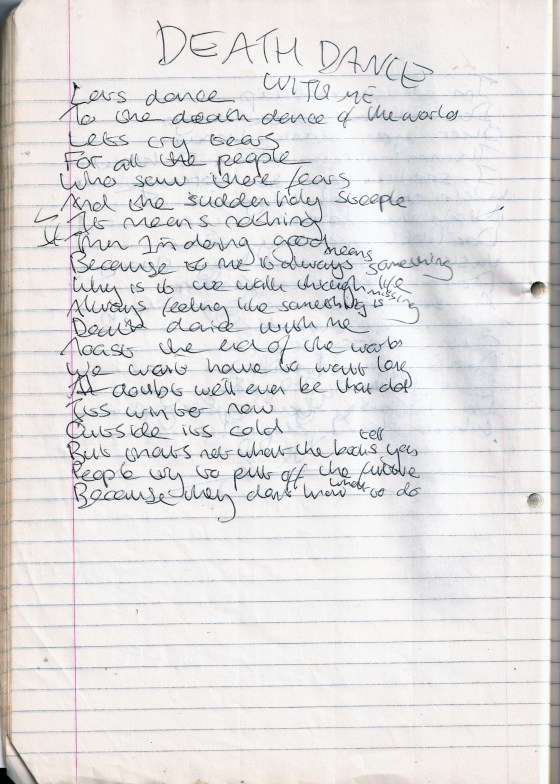 DEATH DANCE
WITH ME
Lets dance
To the death dance of the worlds
Lets cry tears
For all the people
Who saw there fears
And the sudden holy steeple
If It means nothing
Then Im doing good
Because to me it always means something
Why is it we walk through life
Always feeling like something is missing
Death dance with me
Toast the end of the worlds
We wont have to wait long
I doubt we'll ever be that old
Its winter now
Outside its cold
But thats not what the books tell you
People try to put off the future
Because they dont know what to do